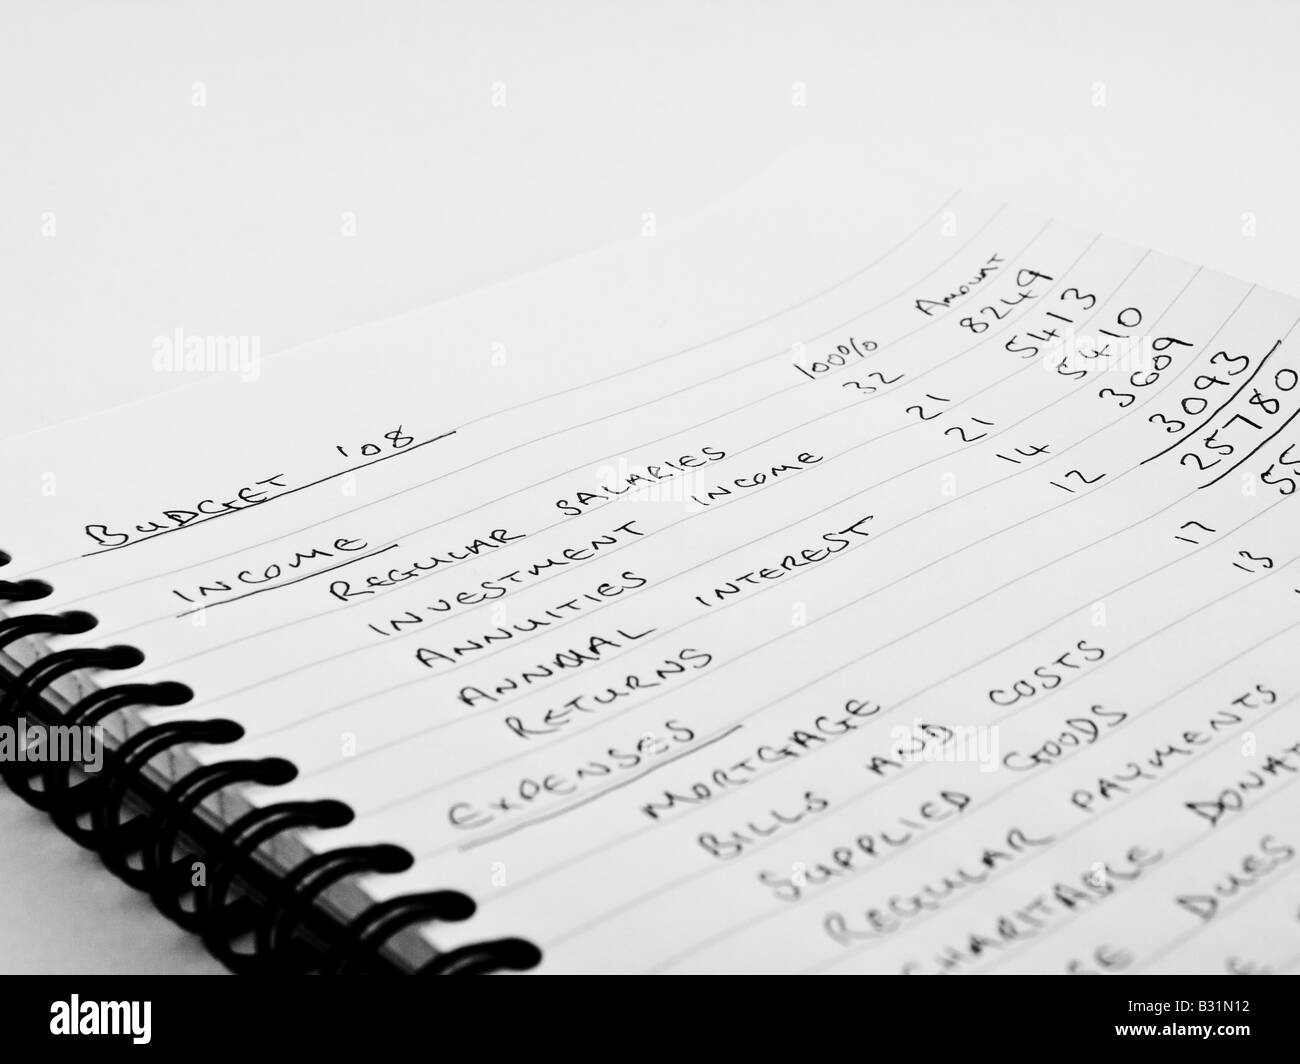 BUDGET '08
INCOME 100% Amount
REGULAR SALARIES 32 8249
INVESTMENT INCOME 21 5413
ANNUITIES 21 5410
ANNUAL INTEREST 14 3609
RETURNS 12 3093
25780
EXPENSES
MORTGAGE 17
BILLS AND COSTS 13
SUPPLIED GOODS
REGULAR PAYMENTS
CHARITABLE
DUES
alamy
Image ID: B31N12
www.alamy.com